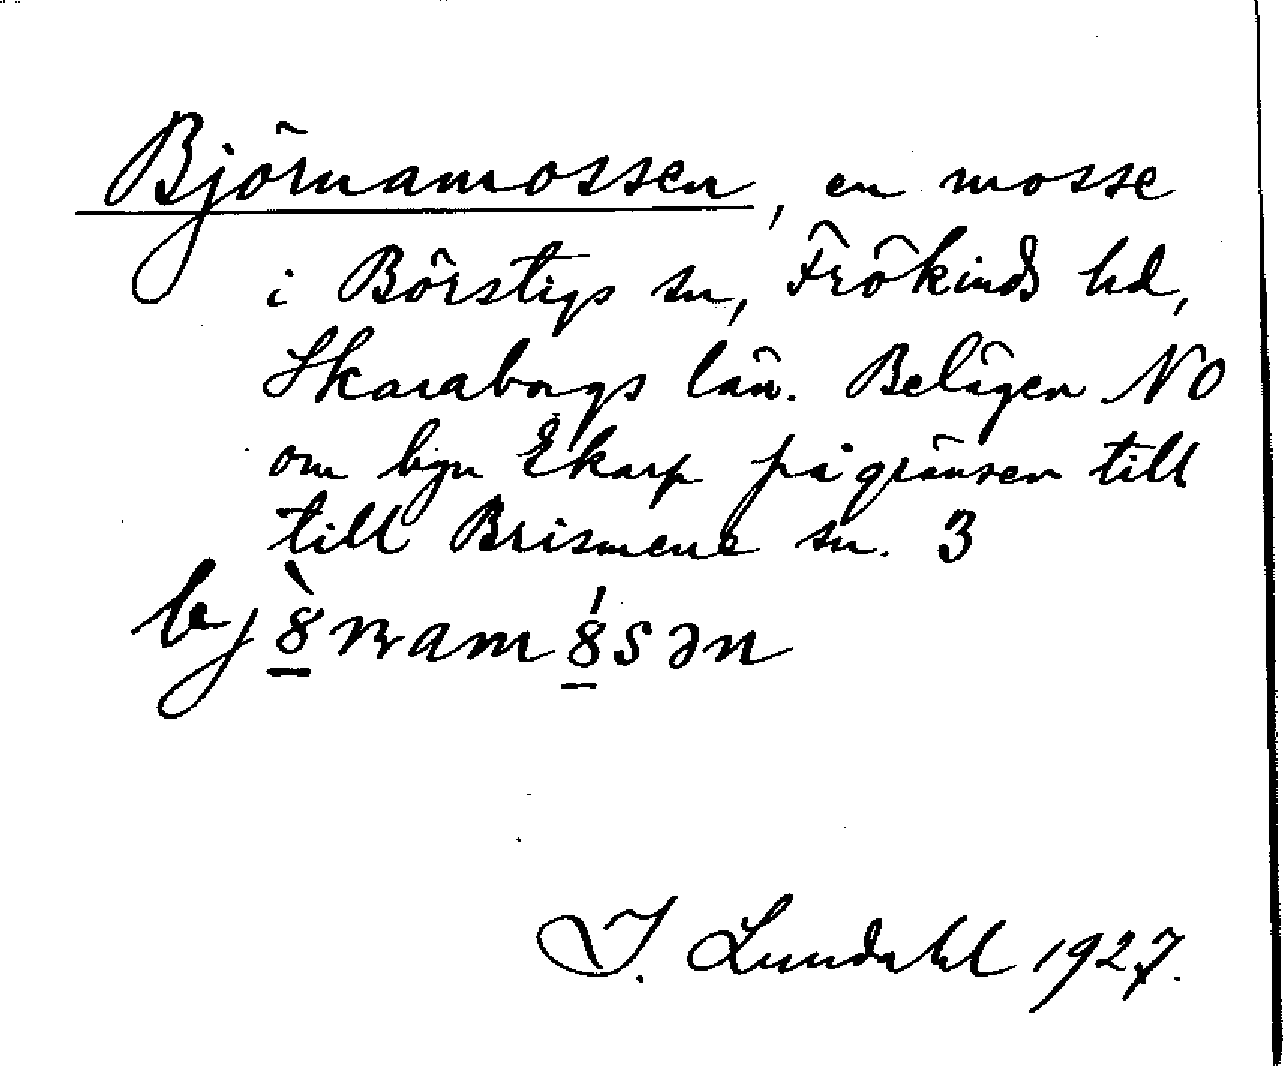 Björnamossen, en mosse
i Börstigs sn, Frökinds hd,
Skaraborgs län. Belägen NO
om byn Ekarp på gränsen till
till Brismene sn. 3
bj8̲̀nam8̲́sən
I. Lundahl 1927.